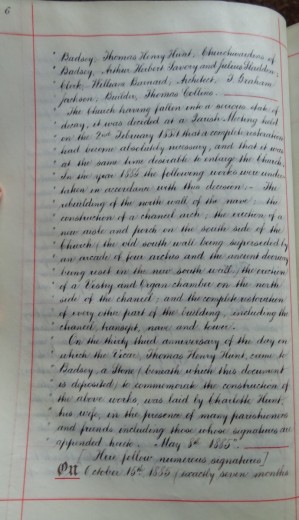 6
" Badsey, Thomas Henry Hunt, Churchwardens of
" Badsey, Arthur Herbert Savory and Julius Sladden,
" Clerk, William Barnard, Architect, T. Graham
" Jackson, Builder, Thomas Collins.
" The Church having fallen into a serious state of
" decay, it was decided at a Parish Meeting held
" on the 2nd February 1881 that a complete restoration
" had become absolutely necessary, and that it was
" at the same time desirable to enlarge the Church.
" In the year 1885 the following works were under-
" taken in accordance with this decision. – The
" rebuilding of the north wall of the nave; the
" construction of a chancel arch; the erection of a
" new aisle and porch on the south side of the
" Church; the old south wall being superseded by
" an arcade of four arches and the ancient doorway
" being reset in the new south wall; the erection
" of a Vestry and Organ chamber on the north
" side of the chancel; and the complete restoration
" of every other part of the building, including the
" chancel, transept, nave and tower.
" On the thirty third anniversary of the day on
" which the Vicar, Thomas Henry Hunt, came to
" Badsey, a Stone, beneath which this document
" is deposited, to commemorate the construction of
" the above works, was laid by Charlotte Hunt,
" his wife, in the presence of many parishioners
" and friends including those whose signatures are
" appended hereto. May 8th 1885".
[Here follow numerous signatures]
On October 15th 1885 (exactly seven months